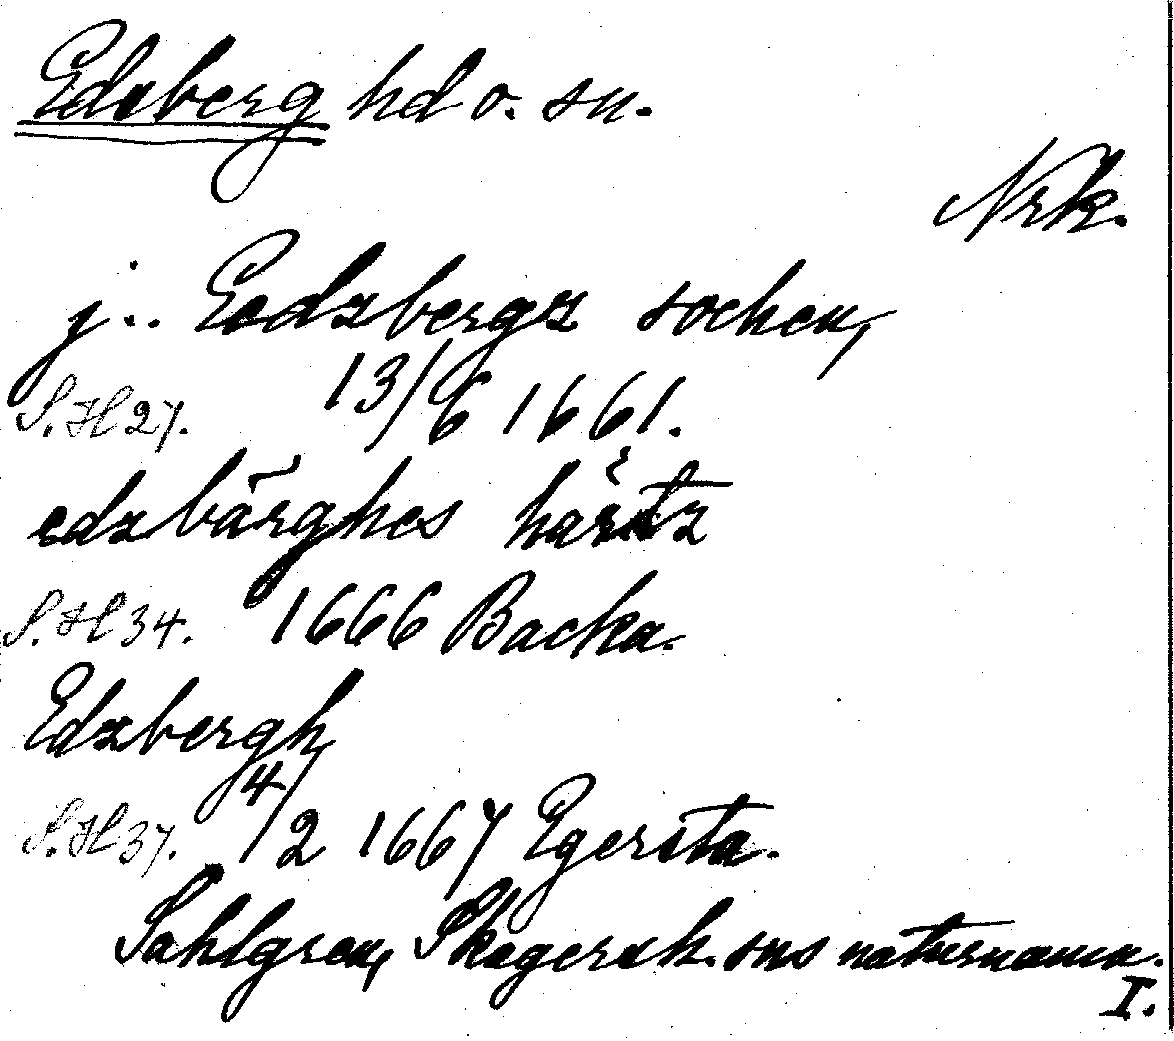 Edsberg hd o. sn.
Nrk.
j... Eedzbergz sochen,
S.H 27. 13/6 1661.
edzbärghes häritz
S.H 34. 1666 Backa.
Edzbergh,
S.H 37. 4/2 1667 Egersta.
Sahlgren, Skagersh. sns naturnamn.
I.